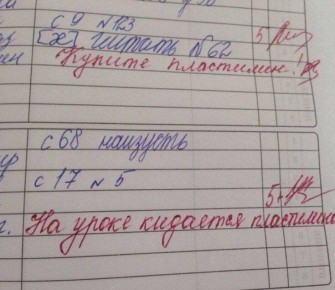 с 9 № 123
[ж] читать № 62
5
Купите пластилин!
с 68 наизусть
с 17 № 5
5+
На уроке кидается пластилино